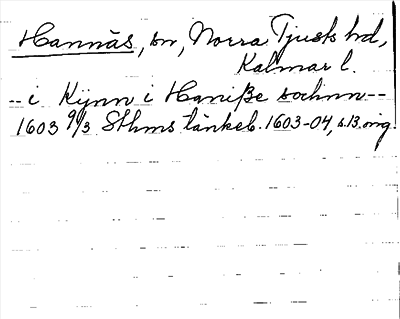 Hannäs, sn, Norra Tjusts hd,
Kalmar l.
-- i Kijnn i Haniße sochnn --
1603 9/3 Sthms tänkeb. 1603-04, s. 13. orig.